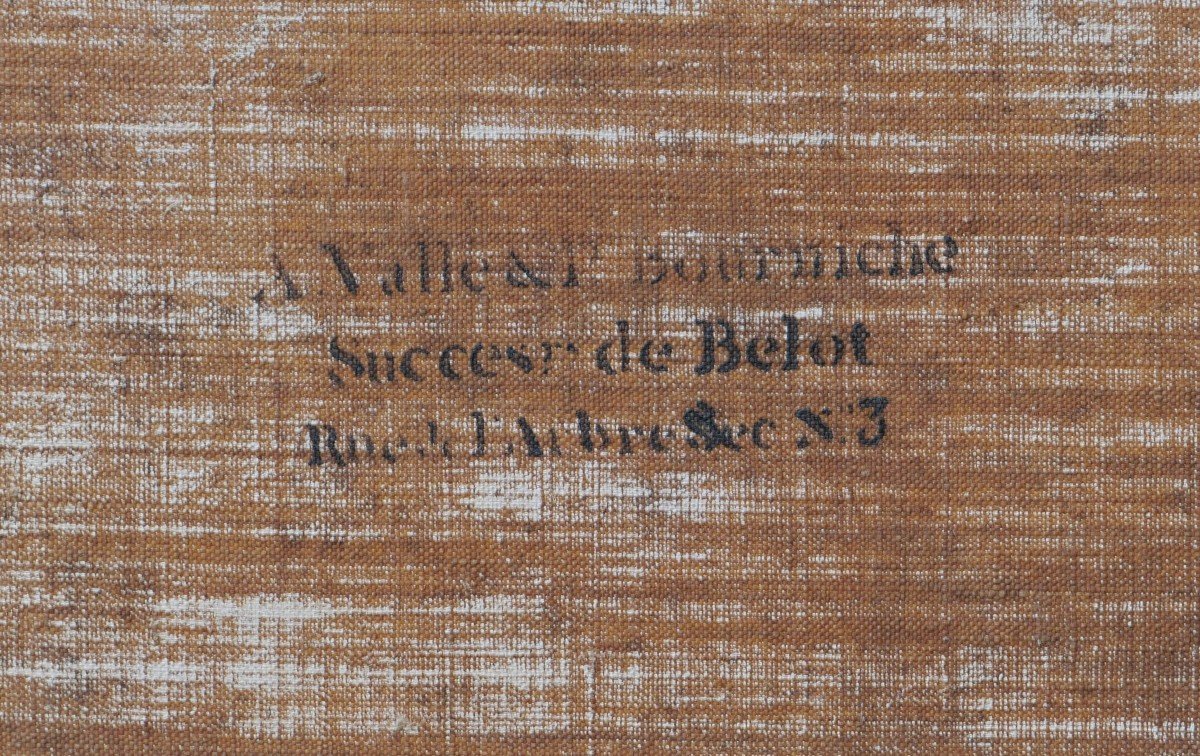 A. Valle & Fs Bourniche
Succesrs de Belot
Rue de l'Arbre Sec No 3